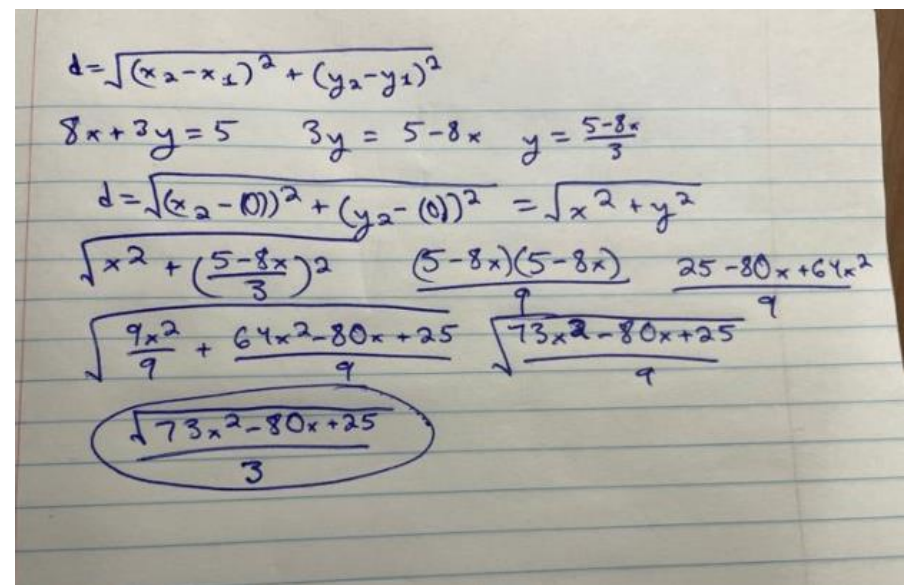 d = √((x₂-x₁)² + (y₂-y₁)²)
8x + 3y = 5  3y = 5-8x  y = (5-8x)/3
d = √((x₂-(0))² + (y₂-(0))²) = √(x² + y²)
√(x² + ((5-8x)/3)²)  (5-8x)(5-8x)/9  (25-80x+64x²)/9
√(9x²/9 + (64x²-80x+25)/9)  √((73x²-80x+25)/9)
√(73x²-80x+25)/3